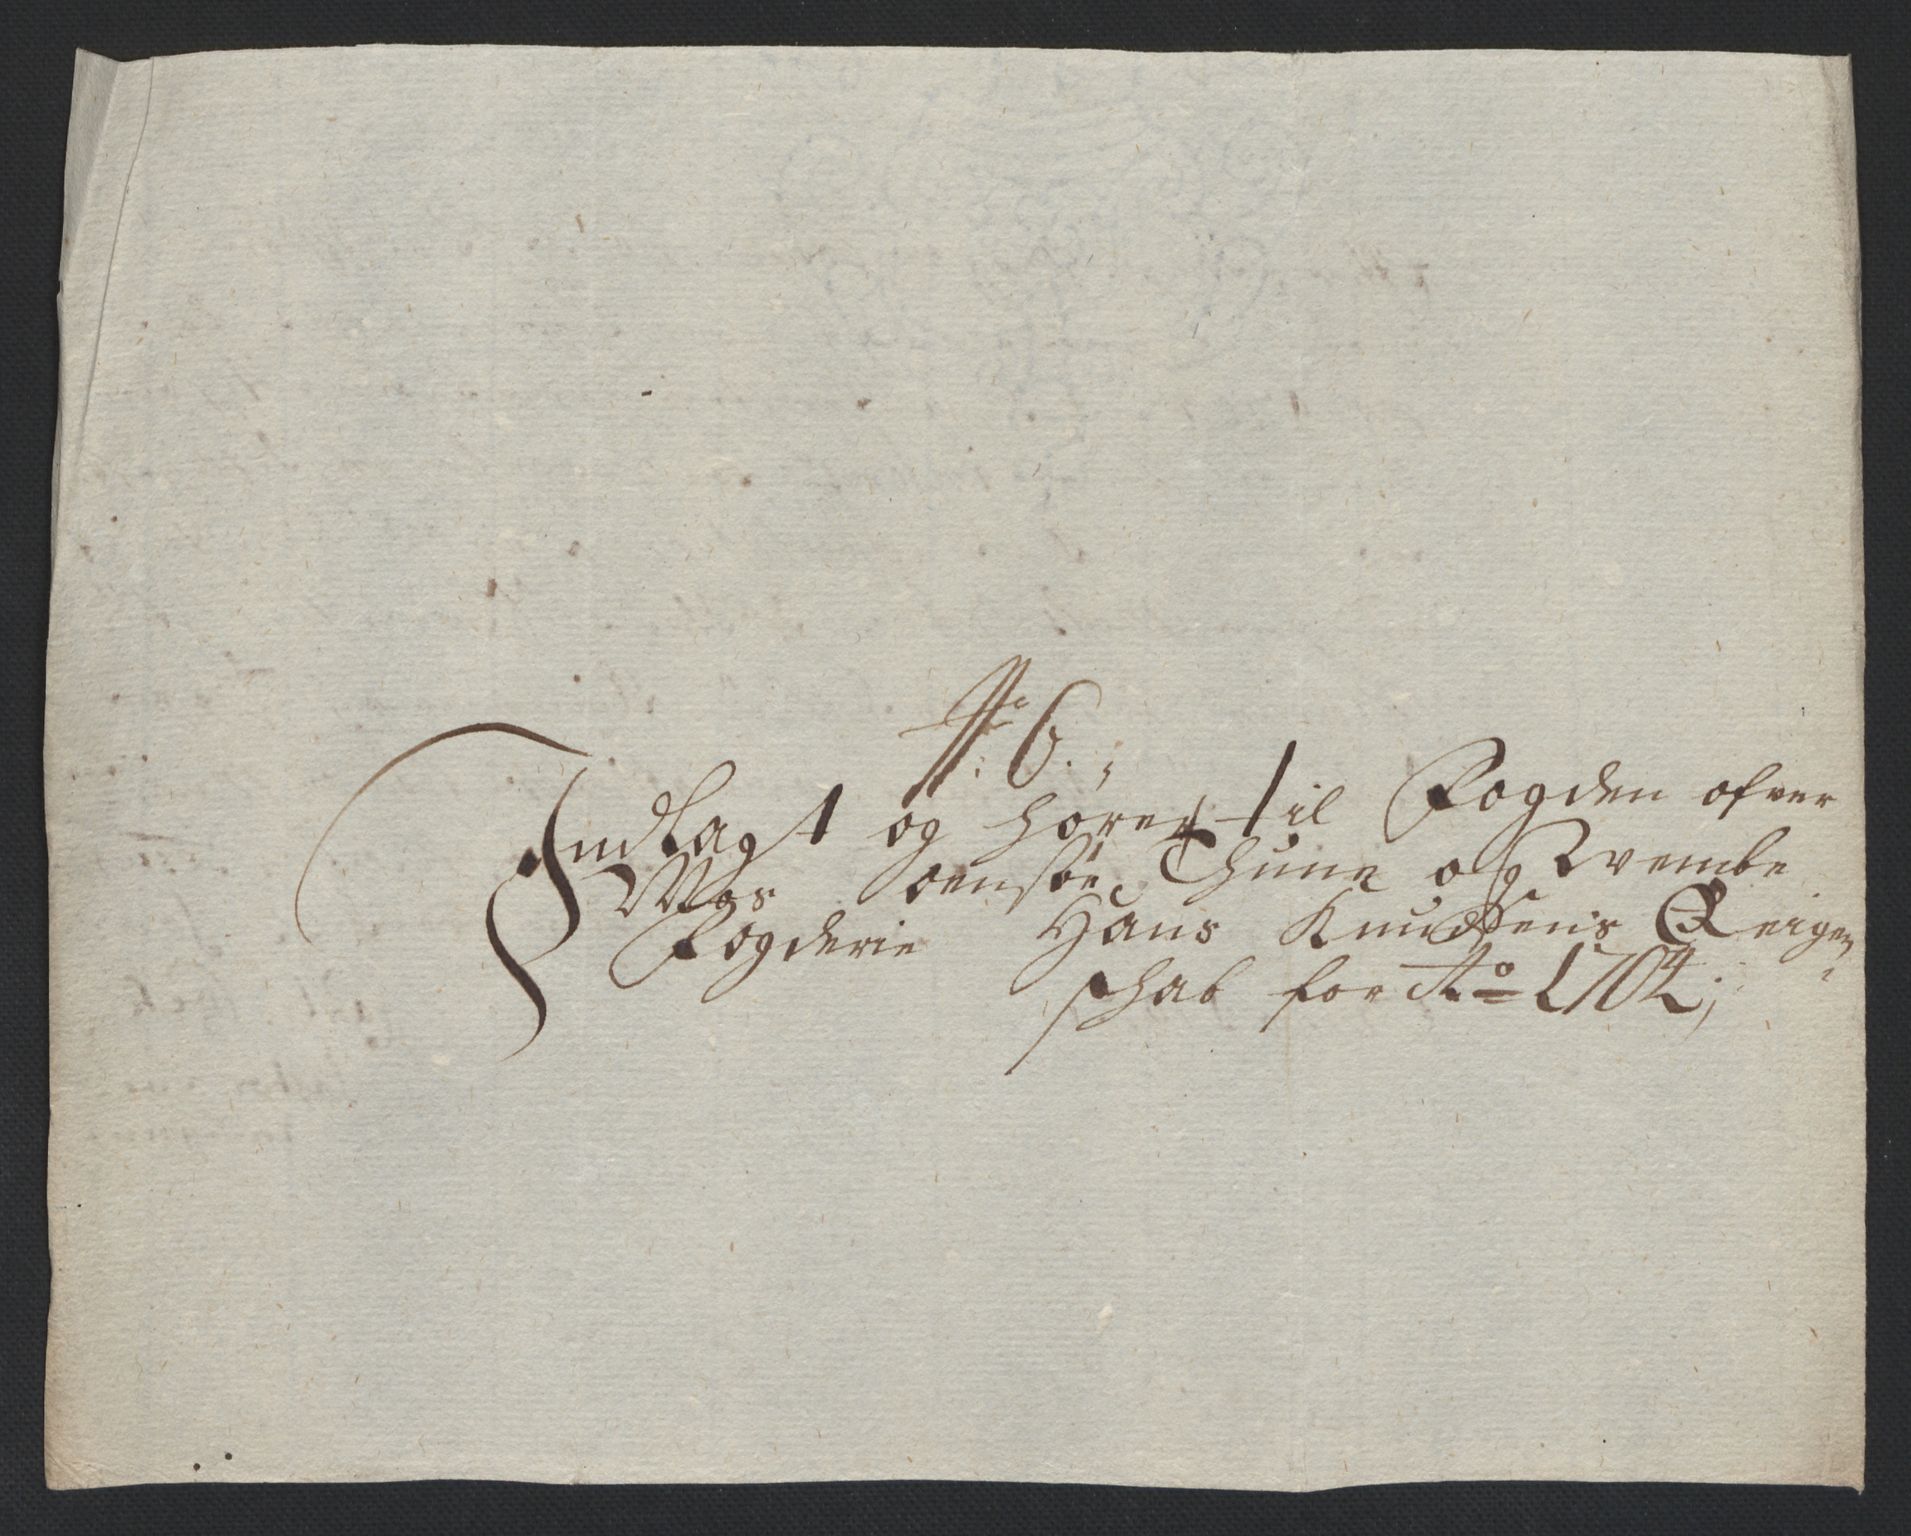 No: 6.
Indlagt og hører til Fogden ofver
Mos oensøe, Thune og Wembe
Fogderie Hans Knudsens Reigen
schab for Ao 1704;